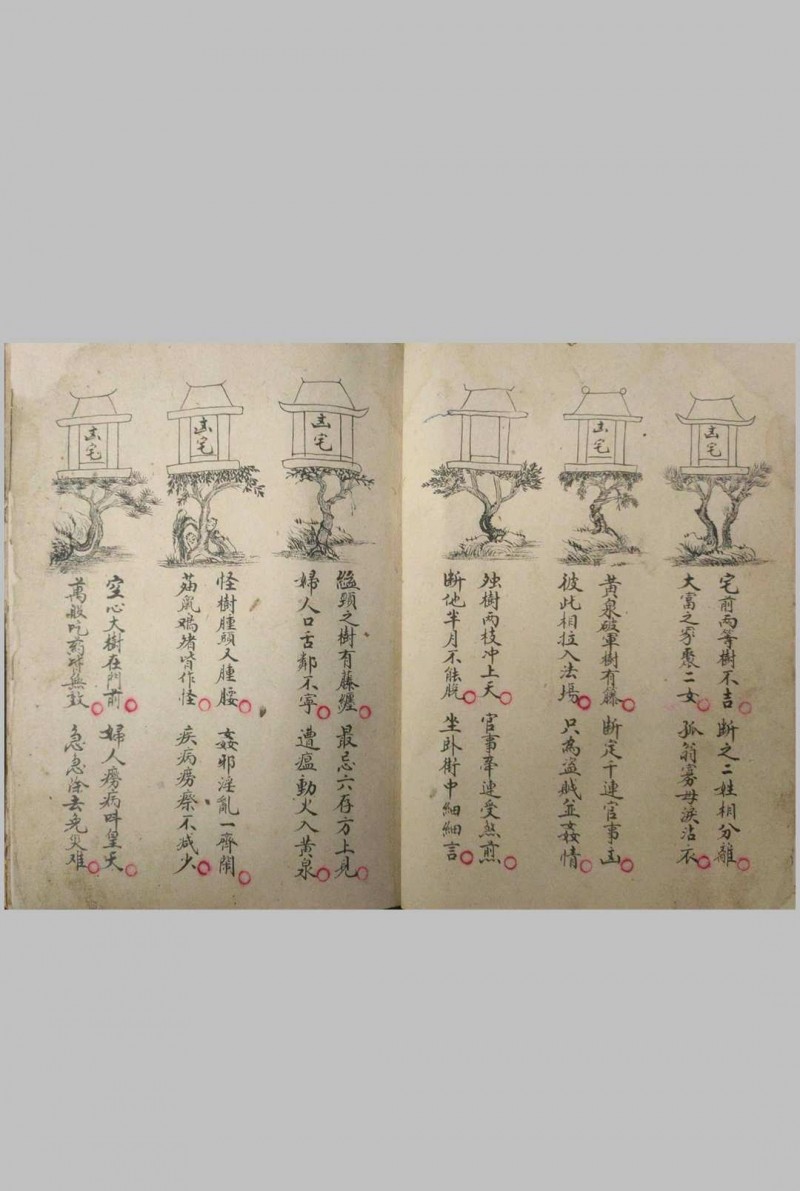 凶宅
宅前両等樹不吉 断之二姓相分離
大富之家聚二女 孤翁寡母淚沾衣
凶宅
黃泉破軍樹有籐 断定千連官事凶
彼此相拉入法場 只為盗贼並姦情
独樹両枝冲上天 官事牽連受煞煎
断他半月不能脱 坐卧街中細細言
凶宅
縊頸之樹有藤纏 最忌六存方上見
婦人口舌鄰不寧 遭瘟動火入黃泉
凶宅
怪樹腫頭又腫腰 姦邪淫亂一齊鬧
猫鼠鸡猪皆作怪 疾病癆瘵不减少
凶宅
空心大樹在門前 婦人癆病呌皇天
萬般吃药無效 急急除去免災难